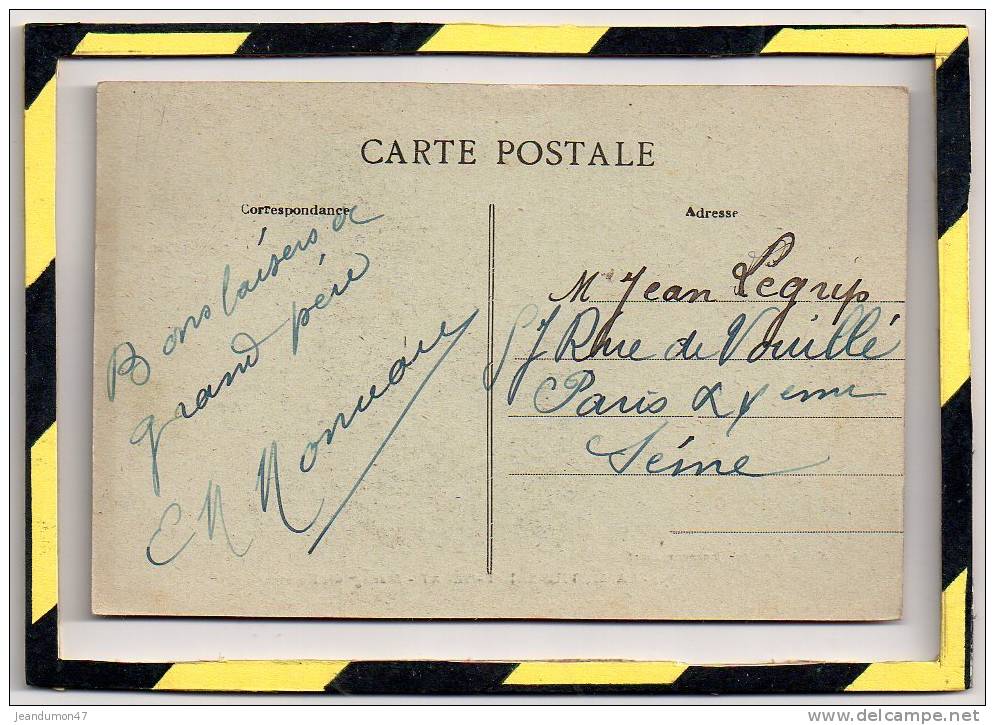 CARTE POSTALE
Correspondance
Bons baisers a
grand père
Adresse
M Jean Legrip
57 Rue de Vouillé
Paris
Séine
jeandumon47
delcampe.net